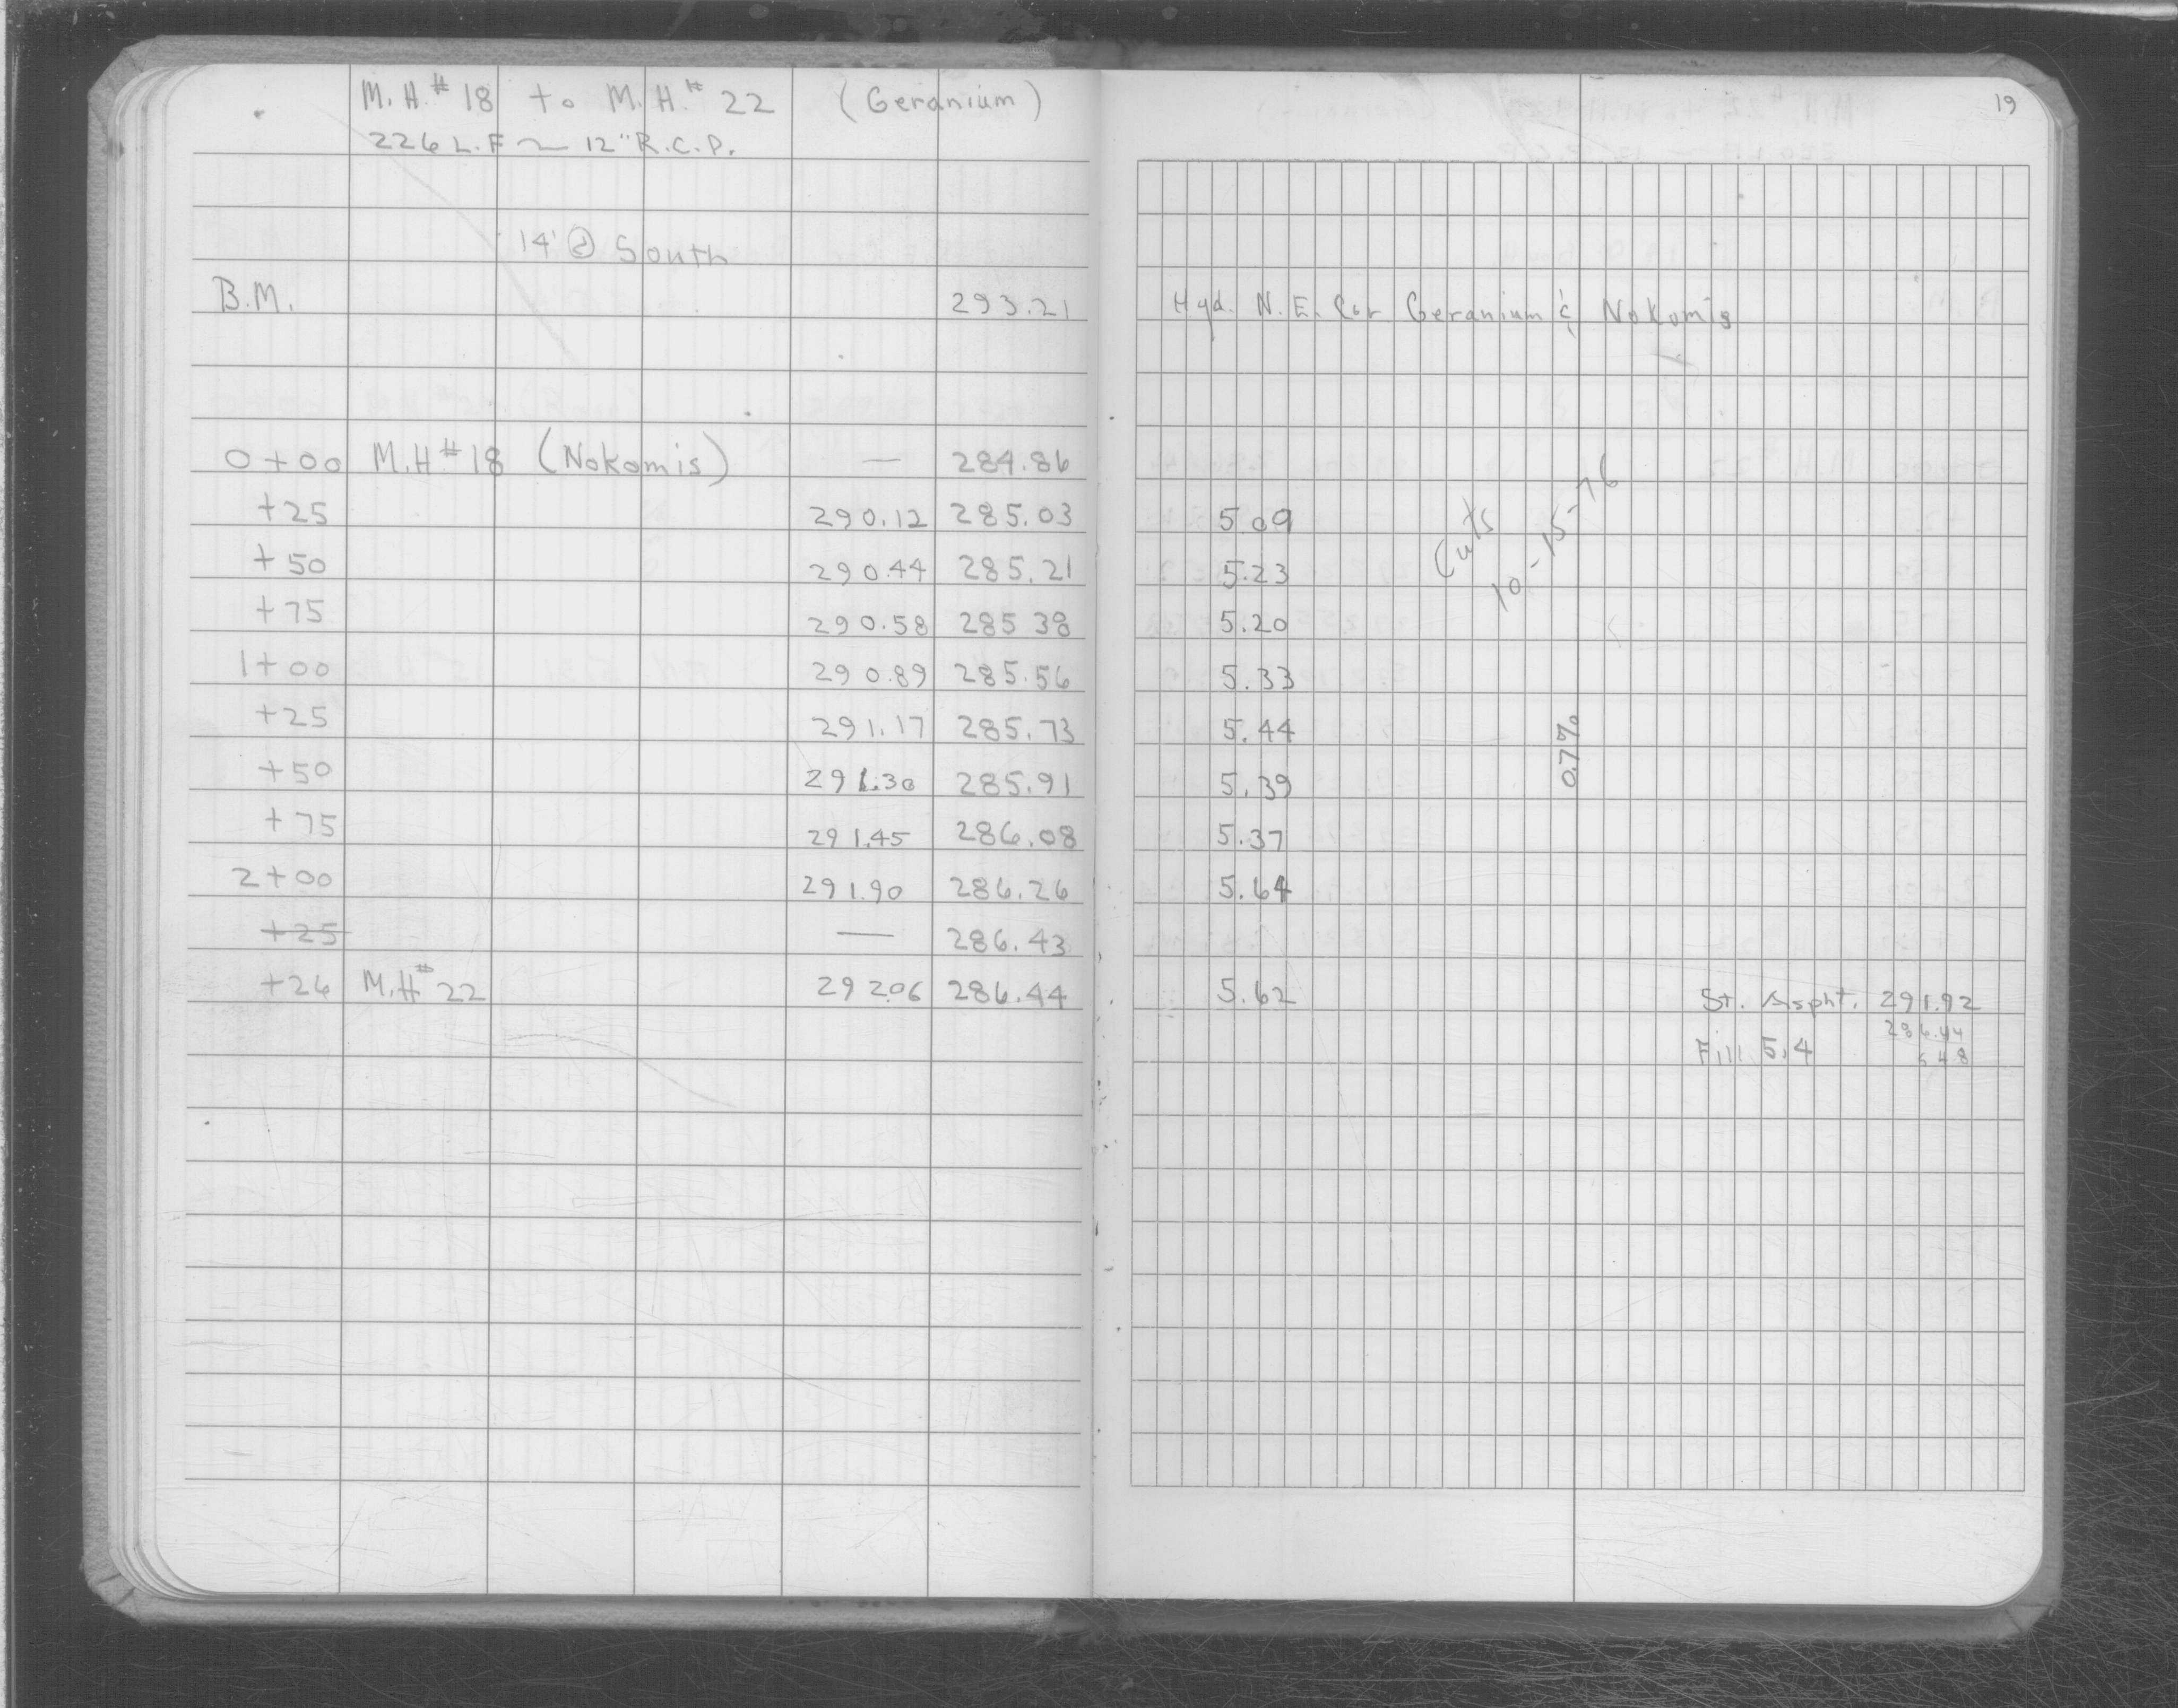 M.H.# 18 to M.H.# 22 (Geranium)
226 L.F ~ 12" R.C.P.
14' @ South
B.M. 293.21
0+00 M.H# 18 (Nokomis) — 284.86
+25 290.12 285.03
+50 290.44 285.21
+75 290.58 285 38
1+00 290.89 285.56
+25 291.17 285.73
+50 291.30 285.91
+75 291.45 286.08
2+00 291.90 286.26
+25 — 286.43
+26 M.H# 22 292.06 286.44
19
Hyd. N.E. Cor Geranium & Nokomis
5.09
5.23
5.20
5.33
5.44
5.39
5.37
5.64
5.62
Cuts
10-15-76
0.7%
St. Aspht. 291.92
286.44
Fill 5.4
5 48